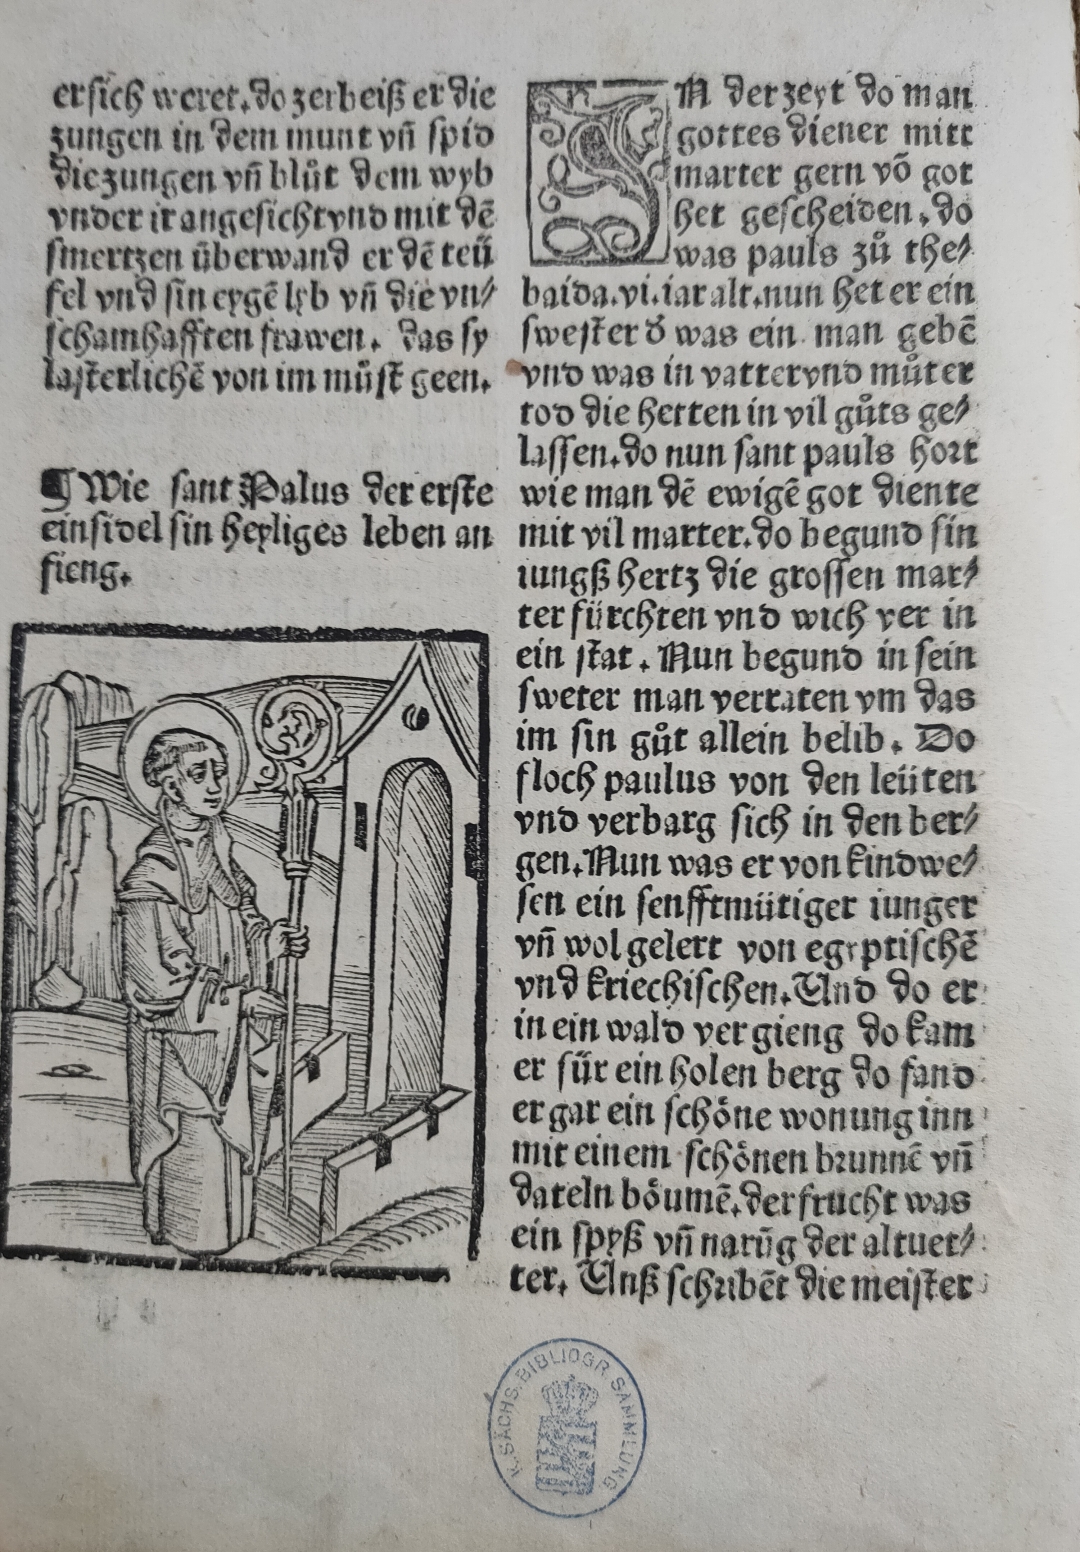 er sich weret.do zerbeiß er die
zungen in dem munt vñ spið
die zungen vñ blůt dem wyb
vnder ir angesicht vnd mit dē
smertzen überwand er dē teü
fel vnd sin eygē lyb vñ die vn⸗
schamhafften frawen. das sy
lasterlichē von im můst geen.
¶ Wie sant Palus der erste
einsidel sin heyliges leben an
fieng.
IN der zeyt do man
gottes diener mitt
marter gern vō got
het gescheiden.do
was pauls zů the⸗
baida.vi.iar alt.nun het er ein
swester d̄ was ein man gebē
vnd was in vatter vnd můter
tod die hetten in vil gůts ge⸗
lassen.do nun sant pauls hort
wie man dē ewigē got diente
mit vil marter.do begund sin
iungß hertz die grossen mar⸗
ter fürchten vnd wich ver in
ein stat. Nun begund in sein
sweter man verraten vm das
im sin gůt allein belib. Do
floch paulus von den leüten
vnd verbarg sich in den ber⸗
gen.Nun was er von kindwe⸗
sen ein senfftmütiger iunger
vñ wol gelert von egyptischē
vnd kriechischen.Und do er
in ein wald vergieng do kam
er für ein holen berg do fand
er gar ein schöne wonung inn
mit einem schönen brunnē vñ
dateln böumē.der frucht was
ein spyß vñ narūg der altuet⸗
ter. Unß schribēt die meister
K. SÄCHS. BIBLIOGR. SAMMLUNG